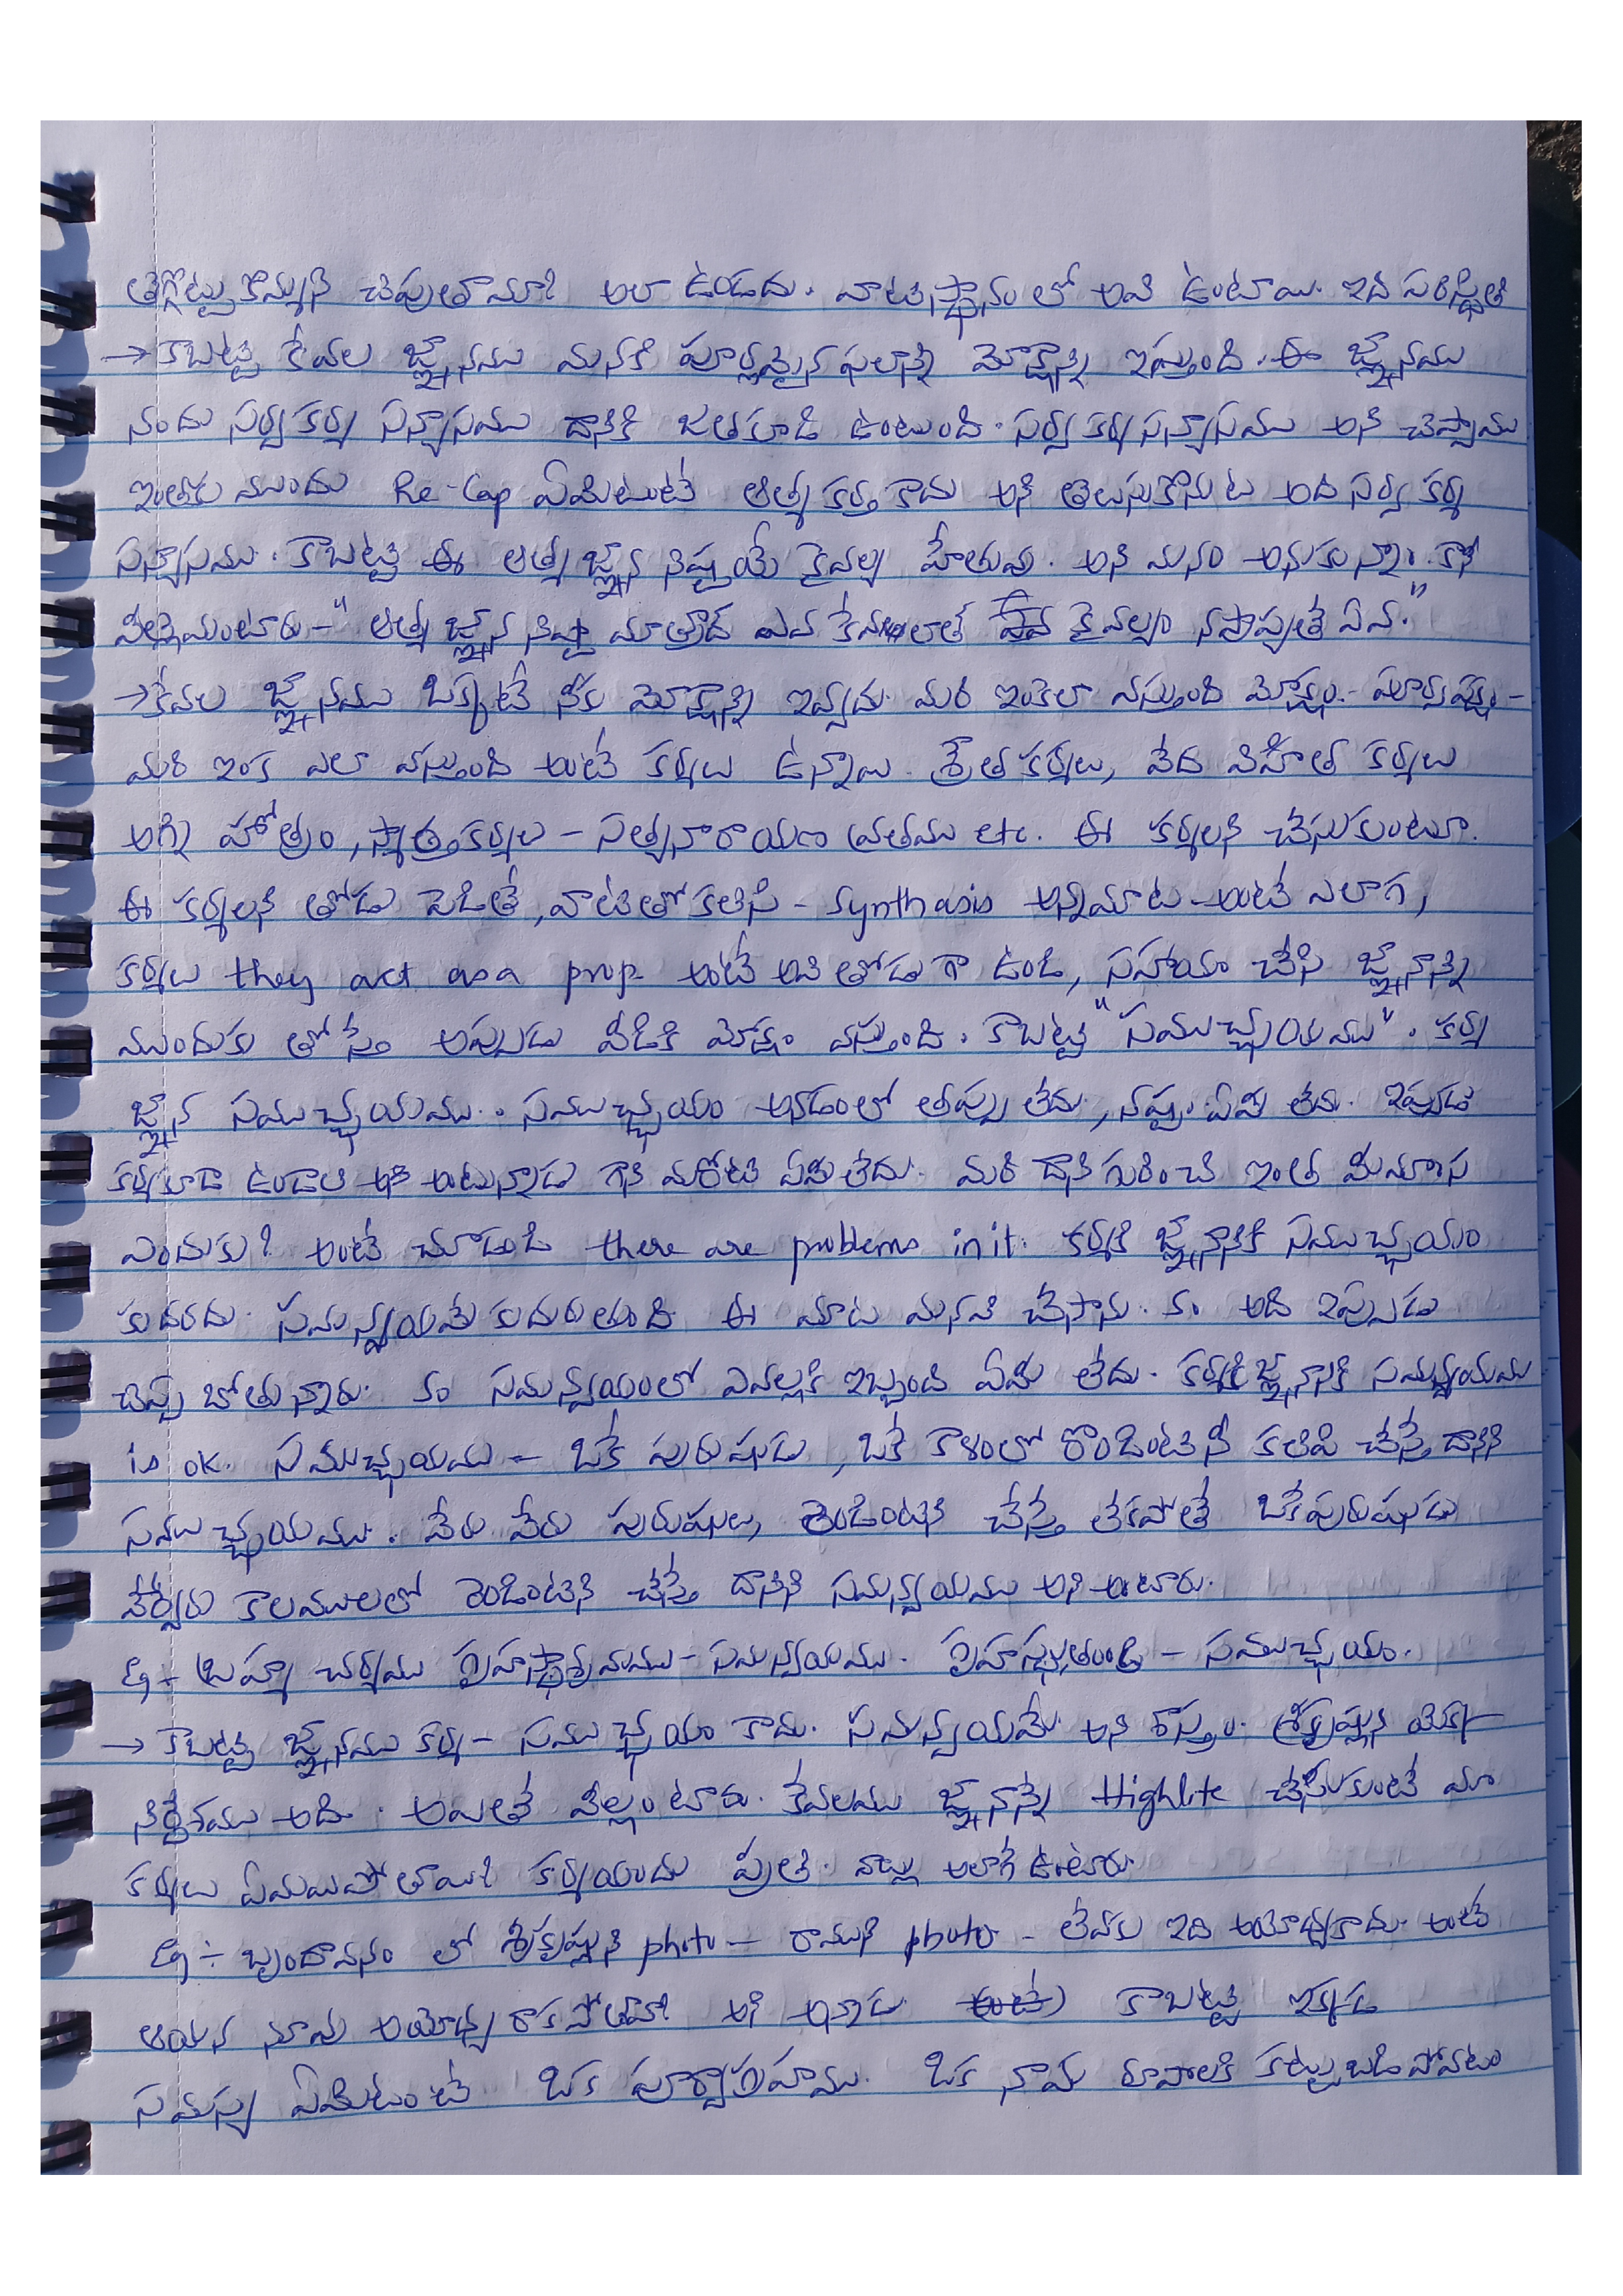 తగ్గొట్టు కొమ్మని చెపుతామా? అలా ఉండదు. వాటిస్థానం లో అవి ఉంటాయి. ఇది పరిస్థితి
→ కాబట్టి కేవల జ్ఞానము మనకి పూర్ణమైన ఫలాన్ని మోక్షాన్ని ఇస్తుంది. ఈ జ్ఞానము
నందు సర్వకర్మ సన్యాసము దానికి జతకూడి ఉంటుంది. సర్వకర్మసన్యాసము అని చెప్పాము
ఇంతకు ముందు Re-Cap ఏమిటంటే ఆత్మ కర్త కాదు అని తెలుసుకొనుట అది సర్వ కర్మ
సన్యాసము. కాబట్టి ఈ ఆత్మజ్ఞాన నిష్టయే కైవల్య హేతువు. అని మనం అనుకున్నాం. కాని
వీళ్లేమంటారు - "ఆత్మ జ్ఞాన నిష్టా మాత్రాద్ ఏవ కేవలాత్ కైవల్యం నప్రాప్యతే ఏవ."
→ కేవల జ్ఞానము ఒక్కటే నీకు మోక్షాన్ని ఇవ్వదు. మరి ఇంకెలా వస్తుంది మోక్షం. - పూర్వపక్షం -
మరి ఇంక ఎలా వస్తుంది అంటే కర్మలు ఉన్నాయి. శ్రౌత కర్మలు, వేద విహిత కర్మలు
అగ్ని హోత్రం, స్మార్త కర్మలు - సత్యనారాయణ వ్రతము etc. ఈ కర్మలని చేసుకుంటూ.
ఈ కర్మలని తోడు పెడితే, వాటితో కలిసి - Synthasis అన్నమాట - అంటే ఎలాగ,
కర్మలు they act as a prop అంటే అవి తోడు గా ఉండి, సహాయం చేసి జ్ఞానాన్ని
ముందుకు తోస్తే అప్పుడు వీడికి మోక్షం వస్తుంది. కాబట్టి "సముచ్ఛయము". కర్మ
జ్ఞాన సముచ్ఛయము. సముచ్ఛయం అనడంలో తప్పు లేదు, నష్టం ఏమి లేదు. ఇప్పుడు
కర్మకూడా ఉండాలి అని అంటున్నాడు గాని మరోటి ఏమిలేదు. మరి దాని గురించి ఇంత మీమాంస
ఎందుకు? అంటే చూడండి there are problems in it. కర్మకి జ్ఞానానికి సముచ్ఛయం
కుదరదు. సమన్వయమే కుదురుతుంది ఈ మాట మనవి చేసాను. అది ఇప్పుడు
చెప్ప బోతున్నారు. సమన్వయంలో ఎవల్లకి ఇబ్బంది ఏమీ లేదు. కర్మకి జ్ఞానానికి సమన్వయము
is ok. సముచ్ఛయము - ఒకే పురుషుడు, ఒకే కాలంలో రెండింటినీ కలిపి చేస్తే దానిని
సముచ్ఛయము. వేరు వేరు పురుషులు, రెండింటిని చేస్తే లేకపోతే ఒకేపురుషుడు
వేర్వేరు కాలములలో రెండింటిని చేస్తే దానిని సమన్వయము అని అంటారు.
Eg - బ్రహ్మ చర్యము గ్రహస్థాశ్రమము - సమన్వయము. గ్రహస్థు, తండ్రి - సముచ్ఛయం.
→ కాబట్టి జ్ఞానము కర్మ - సముచ్ఛయం కాదు. సమన్వయమే అని శాస్త్రం. శ్రీకృష్ణుని యొక్క
నిర్దేశము అది. అయితే వీల్లంటారు. కేవలము జ్ఞానాన్నే Highlite చేసేసుకుంటే మా
కర్మలు ఏమయిపోతాయి? కర్మయందు ప్రీతి. వాల్లు అలాగే ఉంటారు.
Eg ÷ బృందావనం లో శ్రీకృష్ణుని photo - రాముని photo - లేవకు ఇది అయోధ్యకాదు. అంటే
ఆయన మాను అయోధ్య రాకపోతామా? అని అన్నాడు (అంటే) కాబట్టి ఇక్కడ
సమస్య ఏమిటంటే ఒక పూర్వాగ్రహము. ఒక నామ రూపాలకి కట్టుబడి పోవటం